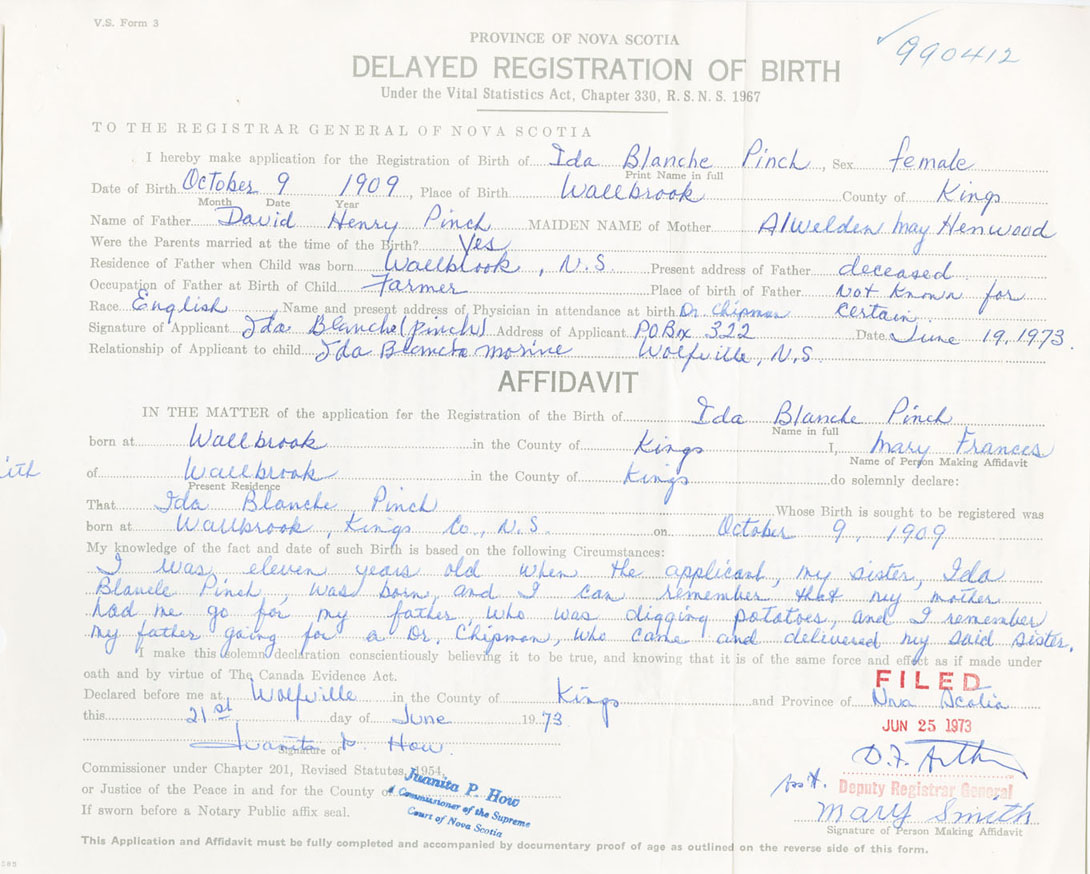 V.S. Form 3
990412
PROVINCE OF NOVA SCOTIA
DELAYED REGISTRATION OF BIRTH
Under the Vital Statistics Act, Chapter 330, R.S.N.S. 1967
TO THE REGISTRAR GENERAL OF NOVA SCOTIA
I hereby make application for the Registration of Birth of Ida Blanche Pinch, Sex female
Print Name in full
Date of Birth October 9 1909, Place of Birth Wallbrook County of Kings
Month Date Year
Name of Father David Henry Pinch MAIDEN NAME of Mother Alwelden May Henwood
Were the Parents married at the time of the Birth? Yes
Residence of Father when Child was born Wallbrook, N.S. Present address of Father deceased
Occupation of Father at Birth of Child Farmer Place of birth of Father Not Known for
Race English Name and present address of Physician in attendance at birth Dr. Chipman Certain
Signature of Applicant Ida Blanche (Pinch) Address of Applicant P.O Box 322 Date June 19, 1973.
Relationship of Applicant to child Ida Blancha Morine Wolfville, N.S.
AFFIDAVIT
IN THE MATTER of the application for the Registration of the Birth of Ida Blanche Pinch
Name in full
born at Wallbrook in the County of Kings I, Mary Frances
Name of Person Making Affidavit
ith of Wallbrook in the County of Kings do solemnly declare:
Present Residence
That Ida Blanche Pinch Whose Birth is sought to be registered was
born at Wallbrook, Kings Co., N.S. on October 9, 1909
My knowledge of the fact and date of such Birth is based on the following Circumstances:
I was eleven years old when the applicant, my sister, Ida
Blanche Pinch, was born, and I can remember that my mother
had me go for my father, who was digging potatoes, and I remember
my father going for a Dr. Chipman, who came and delivered my said sister.
I make this solemn declaration conscientiously believing it to be true, and knowing that it is of the same force and effect as if made under
oath and by virtue of The Canada Evidence Act.
FILED
Declared before me at Wolfville in the County of Kings and Province of Nova Scotia
this 21st day of June 1973
JUN 25 1973
Juanita P. How
Signature of
Commissioner under Chapter 201, Revised Statutes, 1954,
or Justice of the Peace in and for the County of
Juanita P. How
A Commissioner of the Supreme
Court of Nova Scotia
Deputy Registrar General
If sworn before a Notary Public affix seal.
Mary Smith
Signature of Person Making Affidavit
This Application and Affidavit must be fully completed and accompanied by documentary proof of age as outlined on the reverse side of this form.